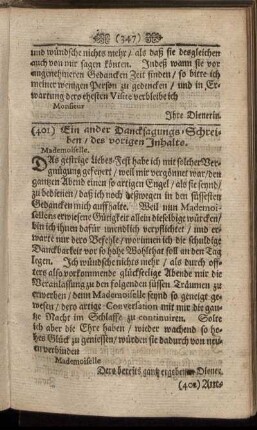 (347)
und wündsche nichts mehr / als daß sie desgleichen
auch von mir sagen könten. Indeß wann sie vor
angenehmeren Gedancken Zeit finden / so bitte ich
meiner wenigen Person zu gedencken / und in Er-
wartung ders ehesten Visite verbleibe ich
Monsieur
Ihre Dienerin.
(401) Ein ander Dancksagungs-Schrei-
ben / des vorigen Inhalts.
Mademoiselle.
DAs gestrige Liebes-Fest habe ich mit solcher Ver-
gnügung gefeyert / weil mir vergönnet war / den
gantzen Abend einen so artigen Engel / als sie seynd /
zu bedienen / daß ich noch deßwegen in den süssesten
Gedancken mich auffhalte. Weil nun Mademoi-
sellens erwiesene Gütigkeit allein dieselbige würcken /
bin ich ihnen dafür unendlich verpflichtet / und er-
warte nur ders Befehle / worinnen ich die schuldige
Danckbarkeit vor so hohe Wohlthat soll an den Tag
legen. Ich wündsche nichts mehr / als durch off-
ters also vorkommende glückseelige Abende mir die
Veranlassung zu den folgenden süssen Träumen zu
erwerben / denn Mademoiselle seynd so geneigt ge-
wesen / ders artige Conversation mit mir die gan-
tze Nacht im Schlaffe zu continuiren. Solte
ich aber die Ehre haben / wieder wachend so ho-
hes Glück zu geniessen / würden sie dadurch von neu-
en verbinden
Mademoiselle
Ders bereits gantz ergebenen Diener.
(402) Ant-